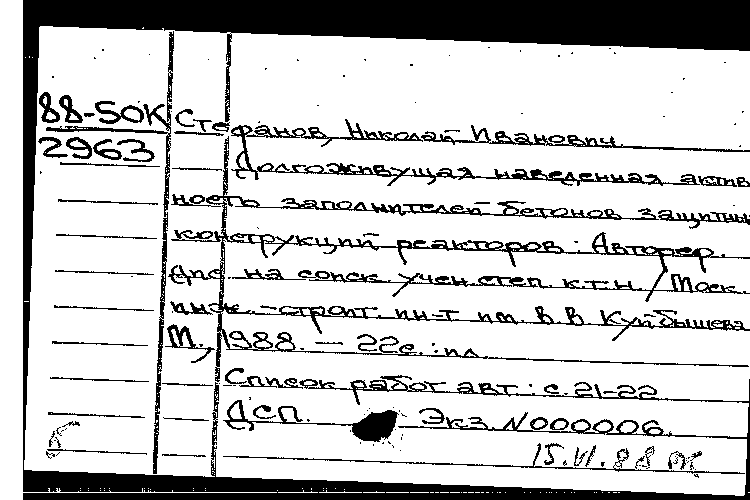 88-5ОК
2963
Стефанов, Николай Иванович.
Долгоживущая наведенная актив
ность заполнителей бетонов защитных
конструкций реакторов: Автореф.
дис. на соиск. учен. степ. к.т.н. / Моск.
инж.-строит. ин-т им. В.В. Куйбышева
М., 1988. — 22с.: ил.
Список работ авт.: с. 21-22
ДСП. Экз. N000006.
15.VI.88